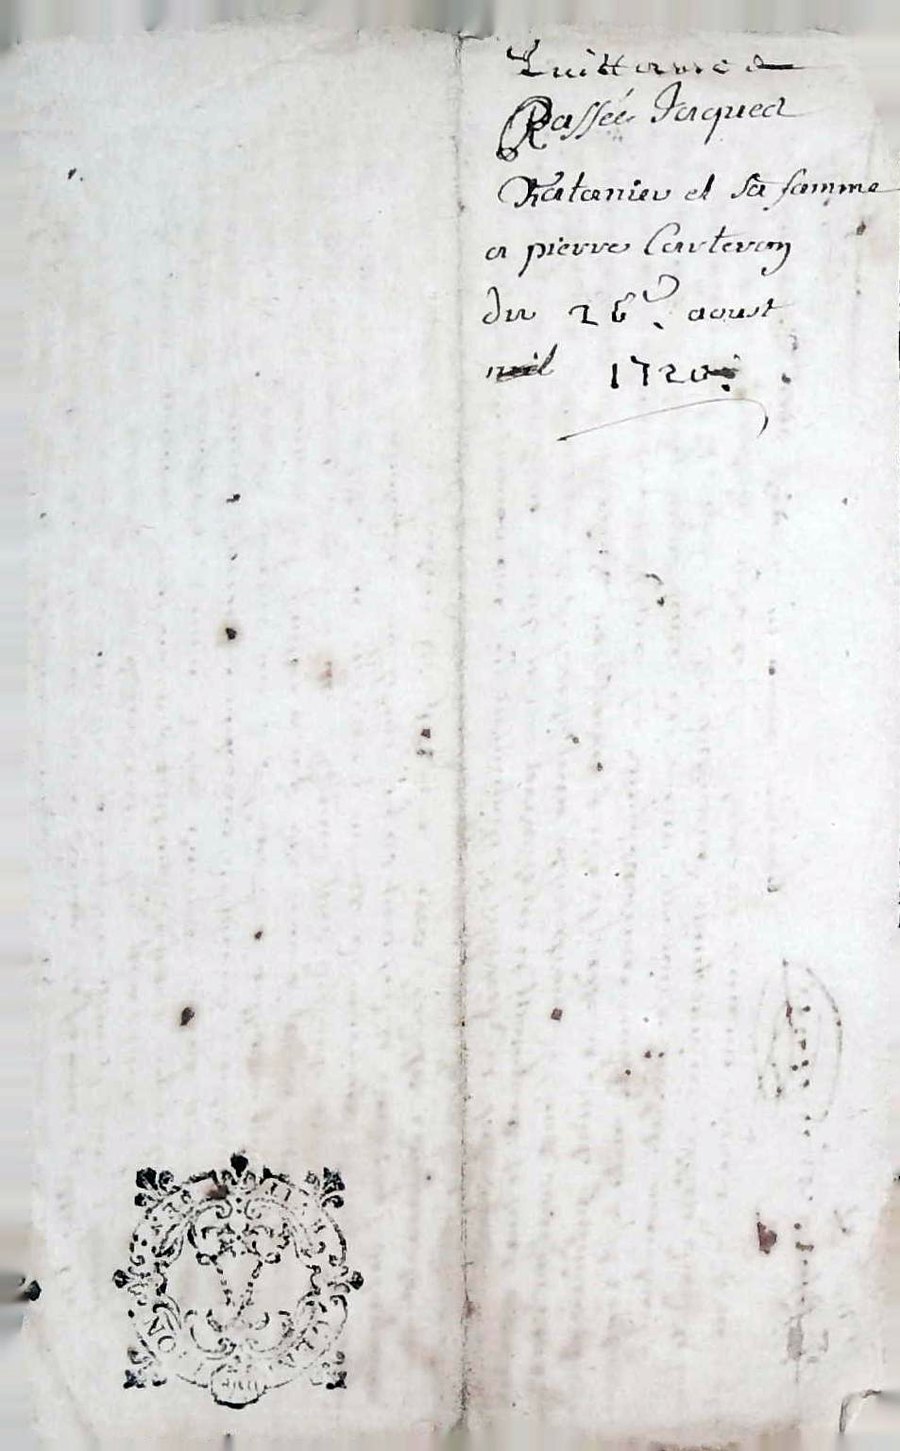 Quittance
Passée Jaques
Ratanier et sa famme
a pierre Carteron
du 26e. aoust
mil 1720